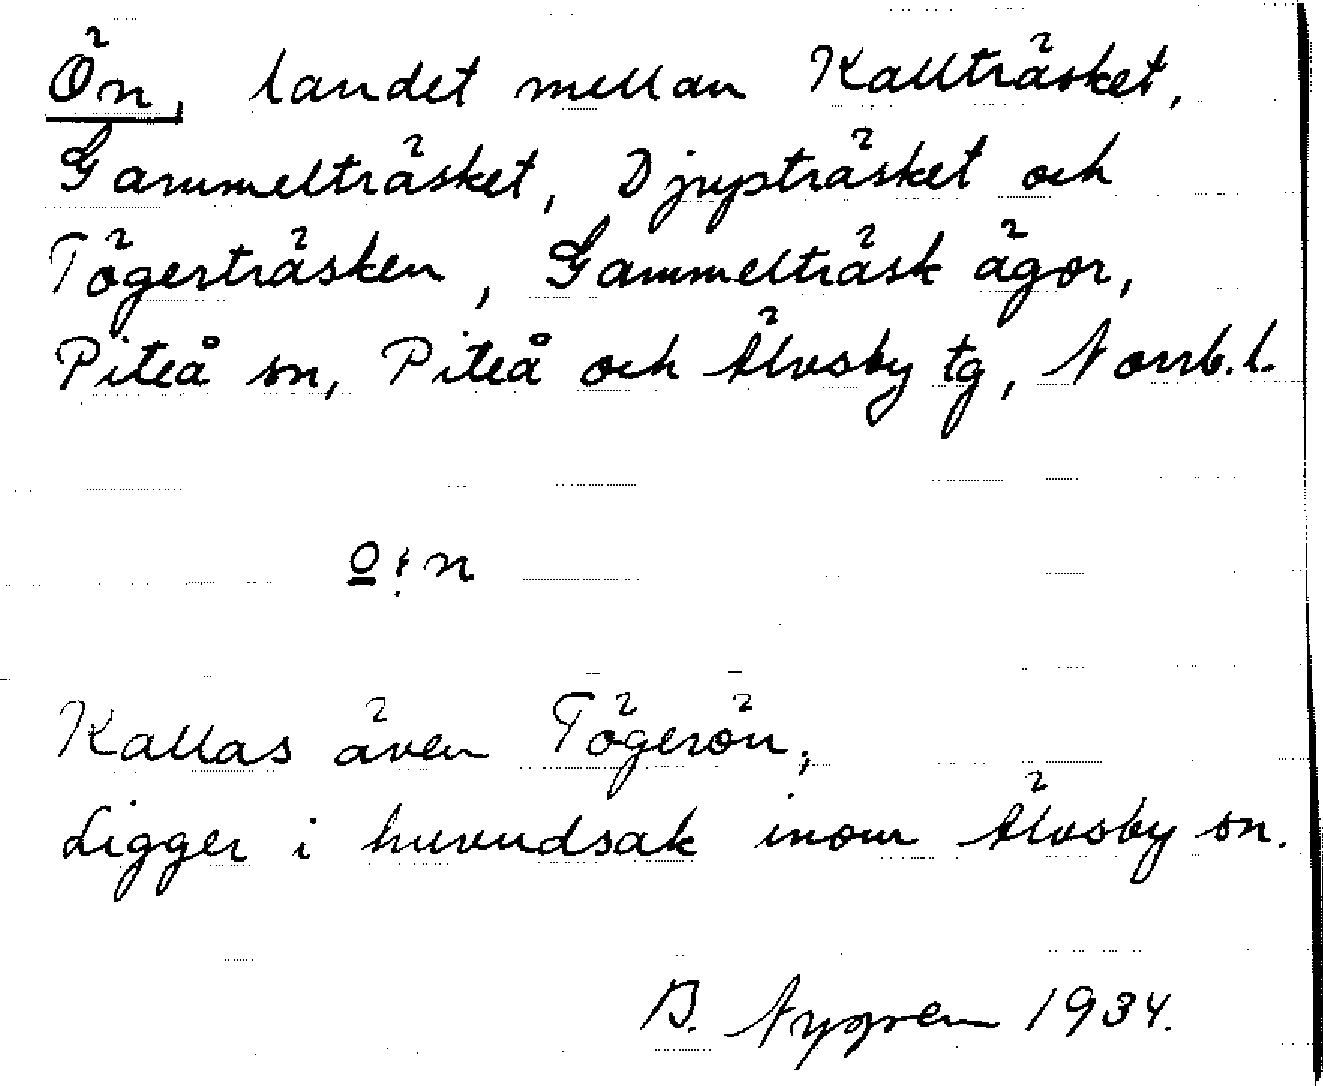 Ön, landet mellan Kallträsket,
Gammelträsket, Djupträsket och
Tögerträsken, Gammelträsk ägor,
Piteå sn, Piteå och Älvsby tg, Norrb. l.
o̲:n
Kallas även Tögerön,
Ligger i huvudsak inom Älvsby sn.
B. Nygren 1934.